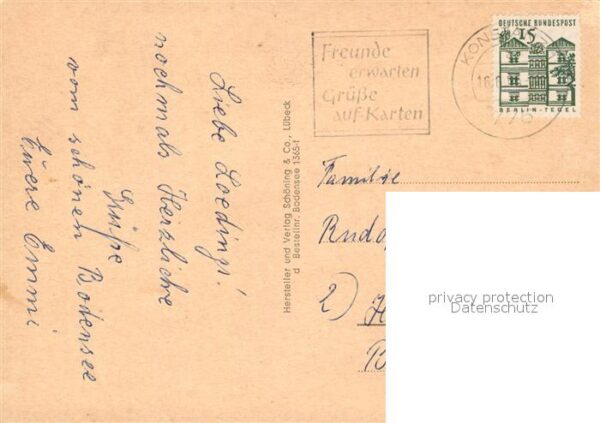 Liebe Loedings!
nochmals Herzliche
Grüße
vom schönen Bodensee
Euere Emmi
Hersteller und Verlag Schöning & Co., Lübeck
d Bestellnr. Bodensee 1365-1
Freunde
erwarten
Grüße
auf Karten
KONS
DEUTSCHE BUNDESPOST
15
BERLIN-TEGEL
Familie
2)
privacy protection
Datenschutz